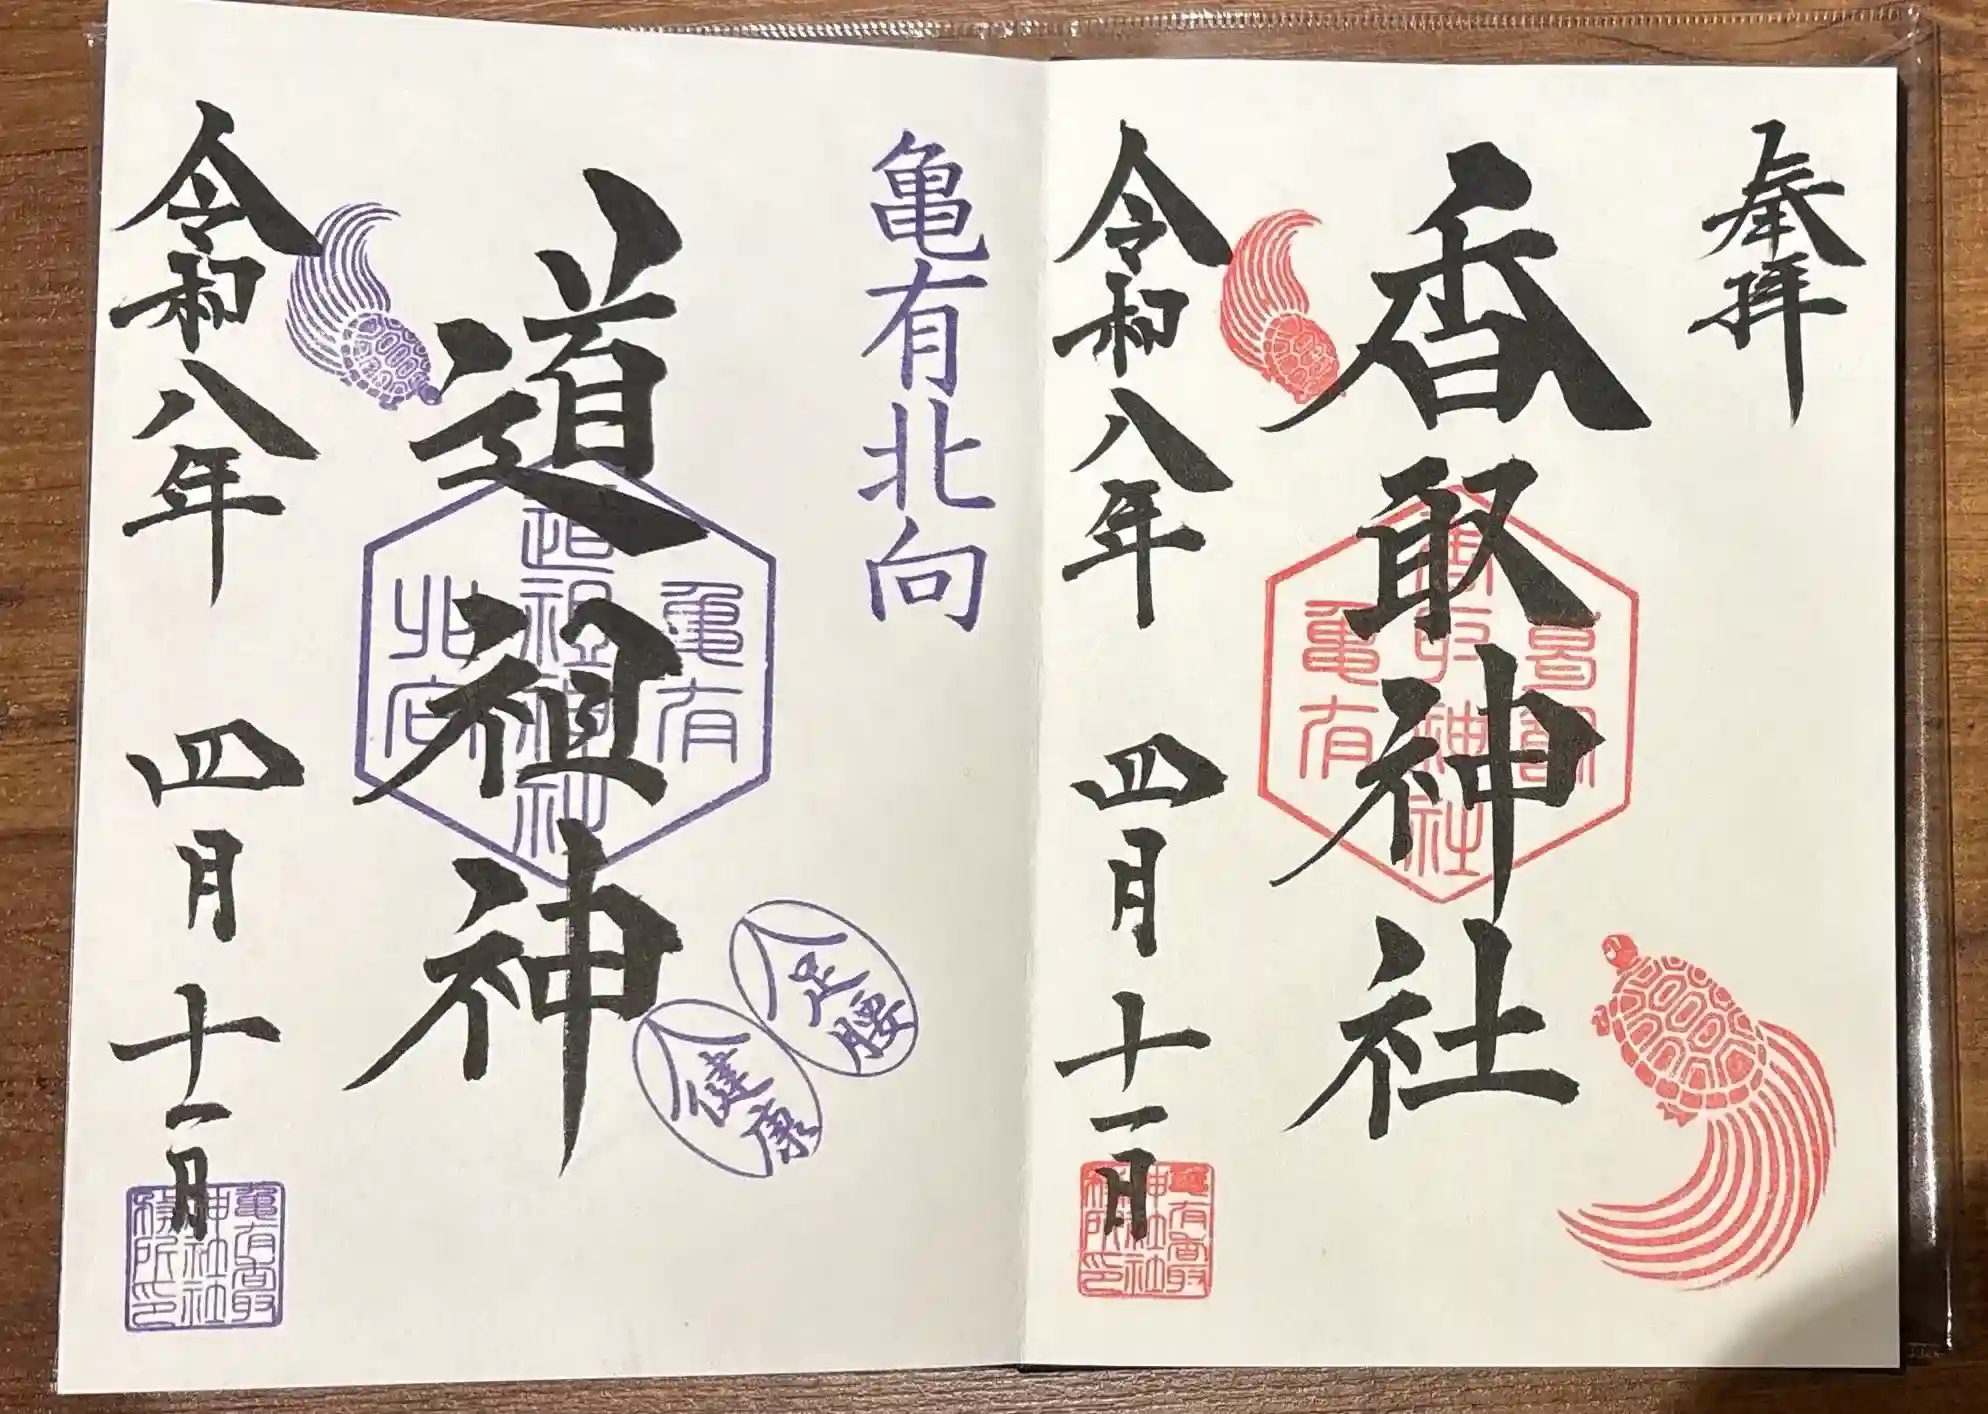 奉拝
香取神社
令和八年 四月十一日
香取神社
亀有
亀有香取
神社社
務所印
亀有北向
道祖神
亀有
道祖神社
北向
足腰
健康
令和八年 四月十一日
亀有香取
神社社
務所印